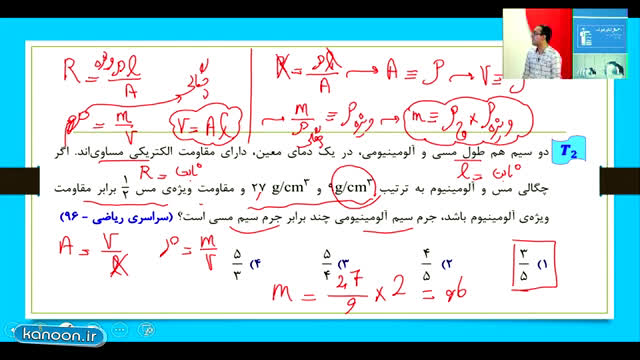 R ≡ ρویژه l / A
ρ ≡ m / V
V = A l
R ≡ ρ l / A → A ≡ ρ → V ≡ ρ
→ m / ρ چگالی ≡ ρ ویژه → m ≡ ρ چ × ρ ویژه
T2
دو سیم هم طول مسی و آلومینیومی، در یک دمای معین، دارای مقاومت الکتریکی مساوی‌اند. اگر
R = ثابت
l = ثابت
چگالی مس و آلومینیوم به ترتیب ۹ g/cm³ و ۲٫۷ g/cm³ و مقاومت ویژه‌ی مس ۱/۲ برابر مقاومت
ویژه‌ی آلومینیوم باشد، جرم سیم آلومینیومی چند برابر جرم سیم مسی است؟ (سراسری ریاضی - ۹۶)
A = V / l
ρ = m / V
۱) ۳/۵
۲) ۴/۵
۳) ۵/۴
۴) ۵/۳
m = 2,7 / 9 × 2 = 0,6
kanoon.ir